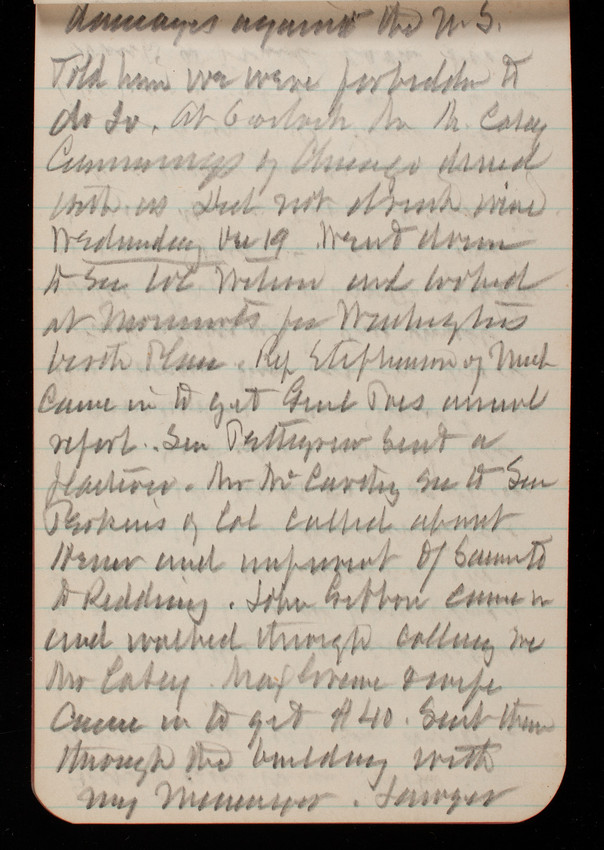 damages against the U.S.
Told him we were forbidden to
do so. At 6 oclock Mr. M. Casey
Cummings of Chicago dined
with us. Did not drink wine
Wednesday Dec 19 Went down
to see Col Wilson and looked
at Monuments for Washingtons
birth Place. Rep Stephenson of Mich
came in to get Genl Poes annual
report. Sen Pettigrew sent a
Mr McCarthy sec to Sen
Perkins of Cal called about
and of Sacramento
to Redding. John Gibbon came in
and walked through calling me
Mr Casey. Maj Greene & wife
came in to get $40. Sent them
through the building with
my Messenger. Sawyer